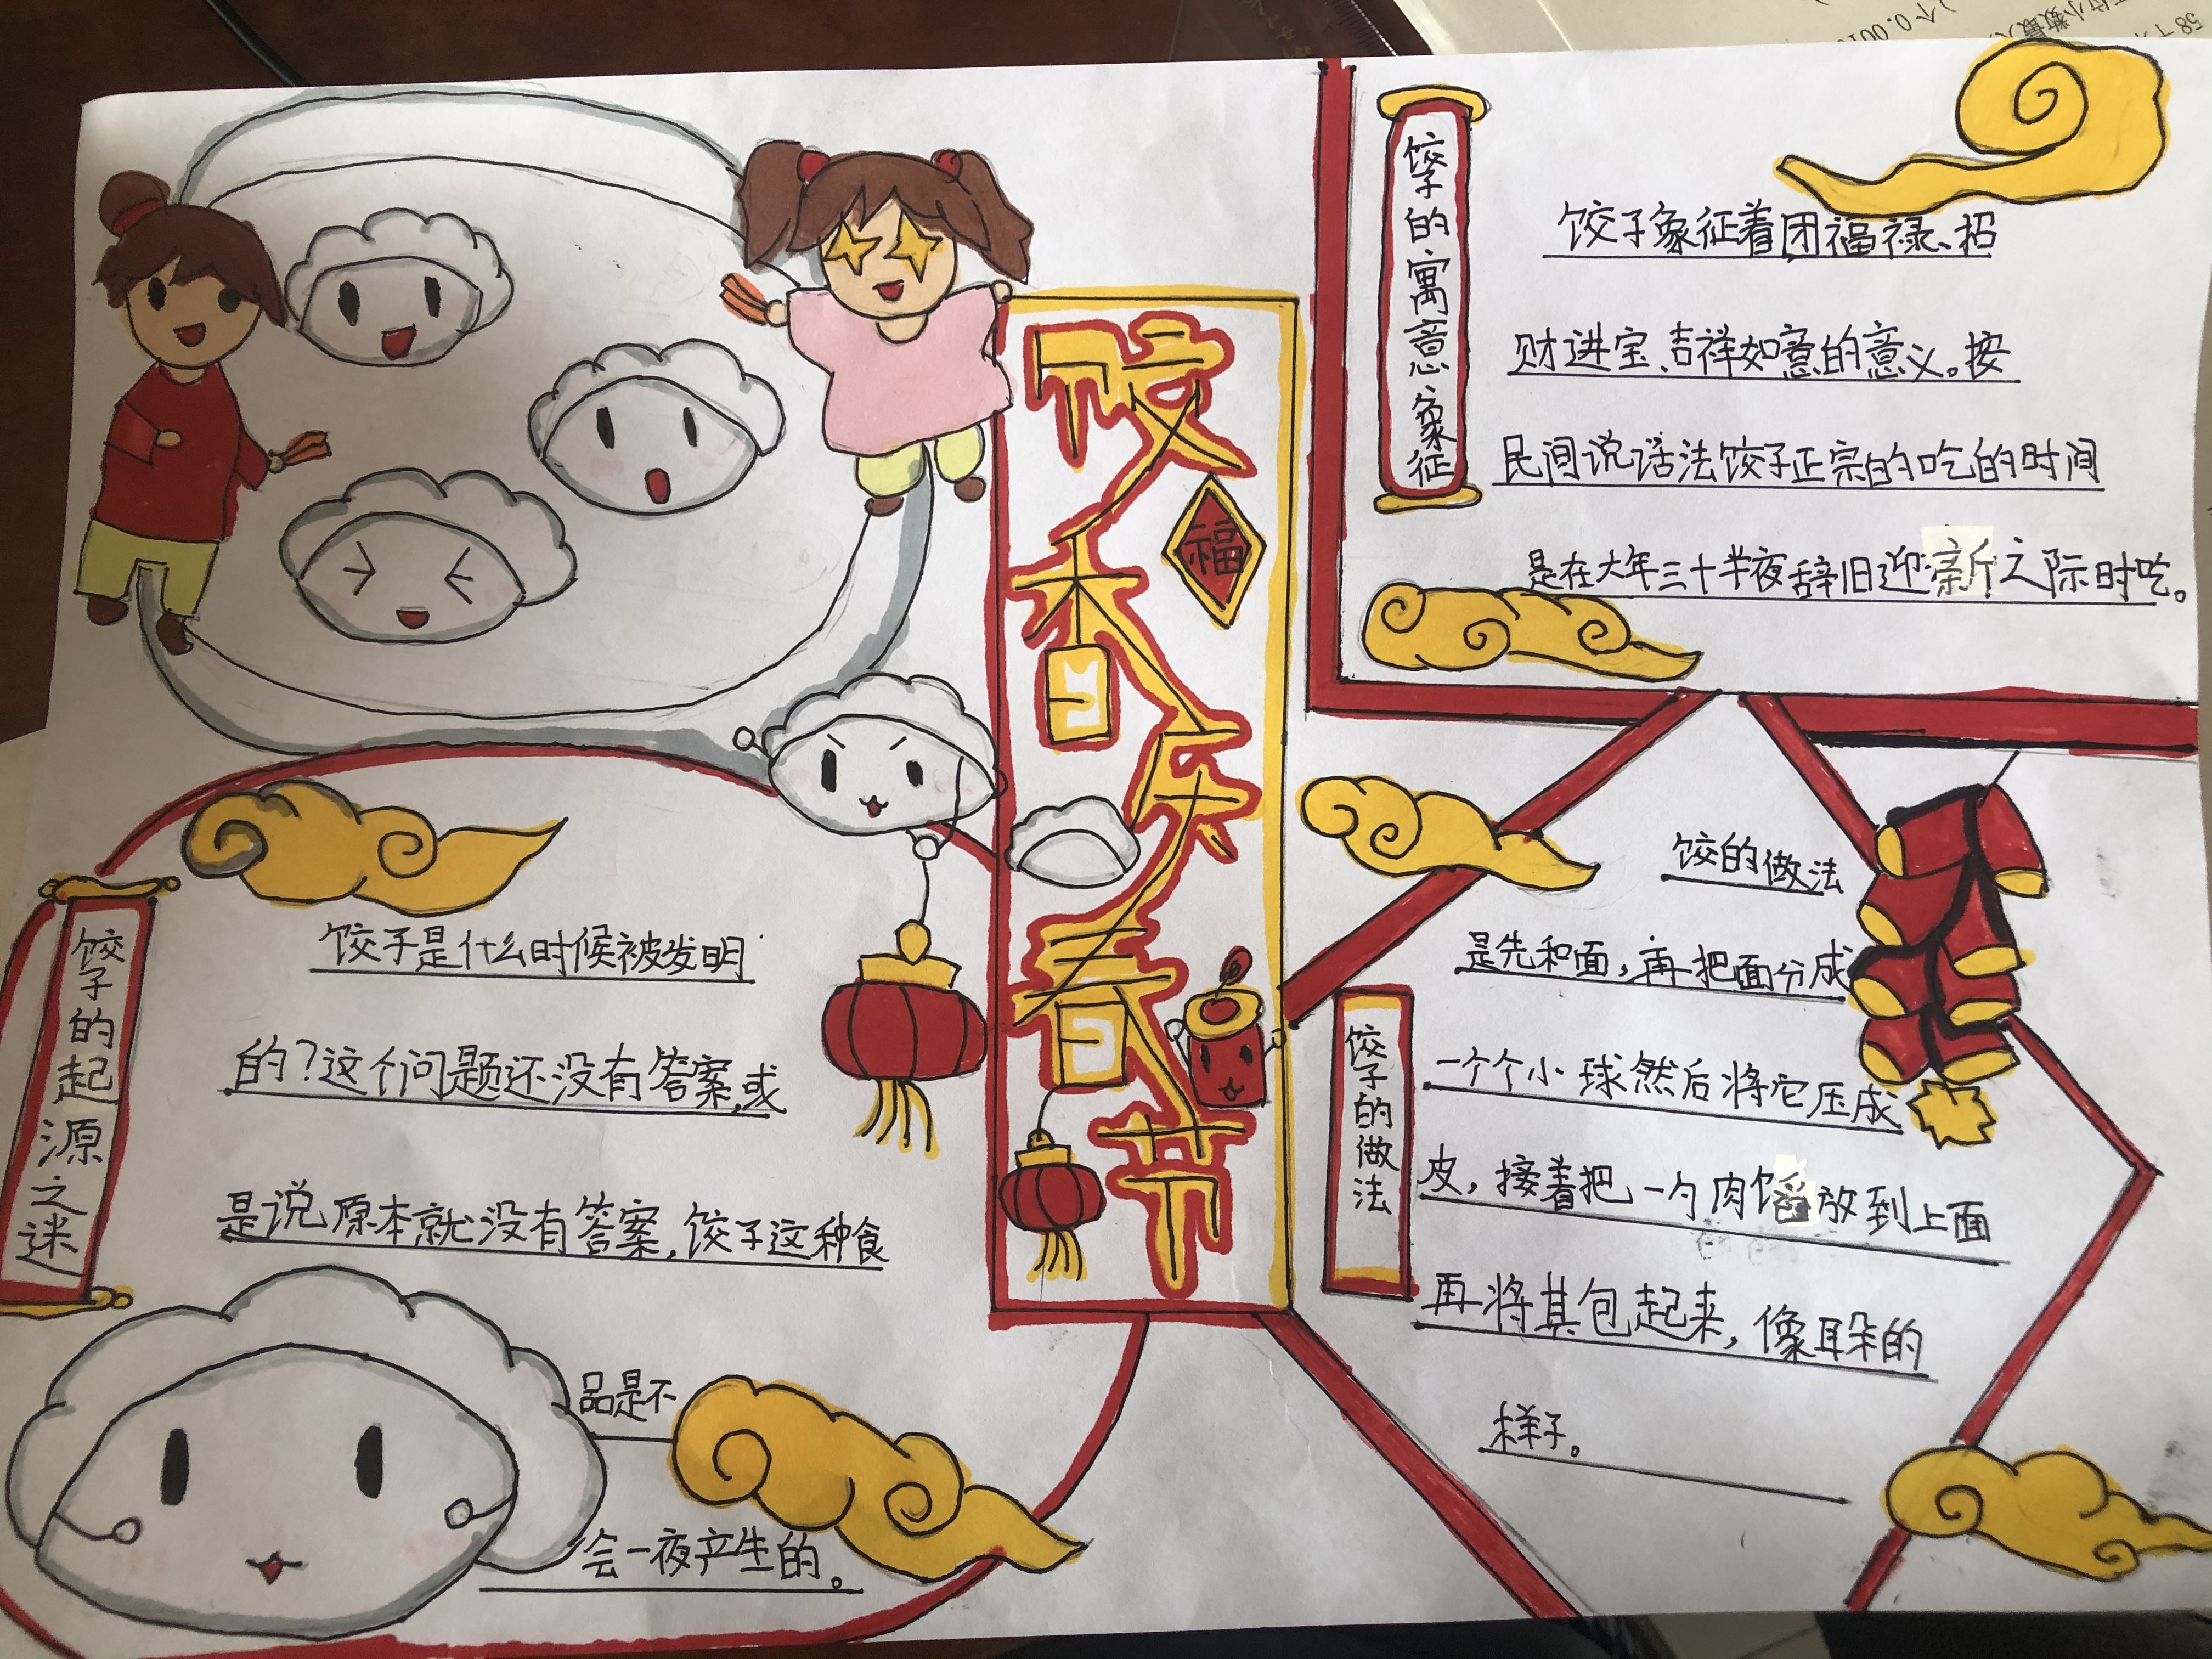 饺香乐春节
福
饺子的寓意象征
饺子象征着团福禄、招
财进宝、吉祥如意的意义。按
民间说话法饺子正宗的吃的时间
是在大年三十半夜辞旧迎新之际时吃。
饺子的起源之迷
饺子是什么时候被发明
的?这个问题还没有答案,或
是说原本就没有答案,饺子这种食
品是不
会一夜产生的。
饺子的做法
饺的做法
是先和面,再把面分成
一个个小球然后将它压成
皮,接着把一勺肉馅放到上面
再将其包起来,像耳朵的
样子。